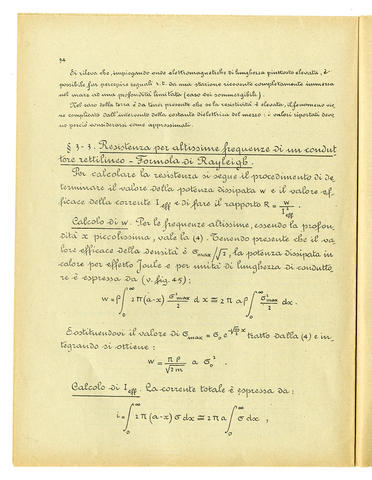 94
Si rileva che, impiegando onde elettromagnetiche di lunghezza piuttosto elevata, è
possibile far percepire segnali r.t. da una stazione ricevente completamente immersa
nel mare ad una profondità limitata (caso dei sommergibili).
Nel caso della terra è da tener presente che se la resistività è elevata, il fenomeno vie
ne complicato dall'intervento della costante dielettrica del mezzo: i valori riportati deve
no perciò considerarsi come approssimati.
§ 3-3. Resistenza per altissime frequenze di un condut
tore rettilineo - Formola di Rayleigh.
Per calcolare la resistenza si segue il procedimento di de
terminare il valore della potenza dissipata w e il valore ef-
ficace della corrente I eff e di fare il rapporto R = w / I²eff
Calcolo di w. Per le frequenze altissime, essendo la profon
dità x piccolissima, vale la (4). Tenendo presente che il va
lore efficace della densità è σmax/√2, la potenza dissipata in
calore per effetto Joule e per unità di lunghezza di condutto
re è espressa da (v. fig. 45):
w = ρ ∫₀^∞ 2π(a-x) σ²max/2 dx ≅ 2πaρ ∫₀^∞ σ²max/2 dx.
Sostituendovi il valore di σmax = σ₀ e tratto dalla (4) e in-
tegrando si ottiene:
w = πρ/√2m a σ₀².
Calcolo di I eff. La corrente totale è espressa da:
i = ∫₀^∞ 2π(a-x) σ dx ≅ 2πa ∫₀^∞ σ dx ,